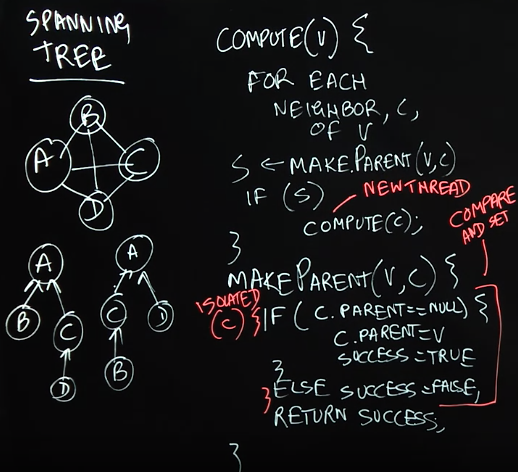 SPANNING
TREE
B
A
C
D
A
B
C
D
A
C
D
B
COMPUTE(V) {
FOR EACH
NEIGHBOR, C,
OF V
S ← MAKE.PARENT(V,C)
IF (S)
NEW THREAD
COMPUTE(C);
}
COMPARE
AND SET
MAKEPARENT(V,C) {
ISOLATED
(C) { IF ( C.PARENT==NULL) {
C.PARENT=V
SUCCESS=TRUE
}
} ELSE SUCCESS=FALSE,
RETURN SUCCESS;
}